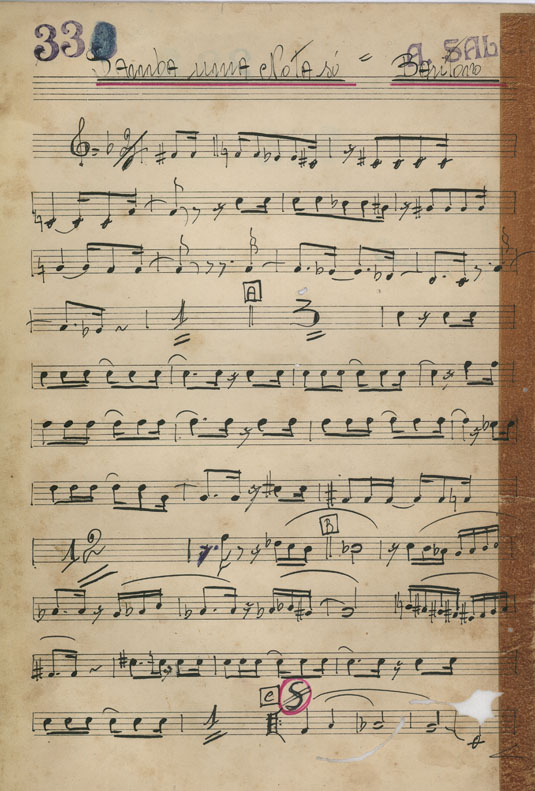 330 A. SAL
Samba uma Nota só = Barítono
A
1 3
B
12
C
1